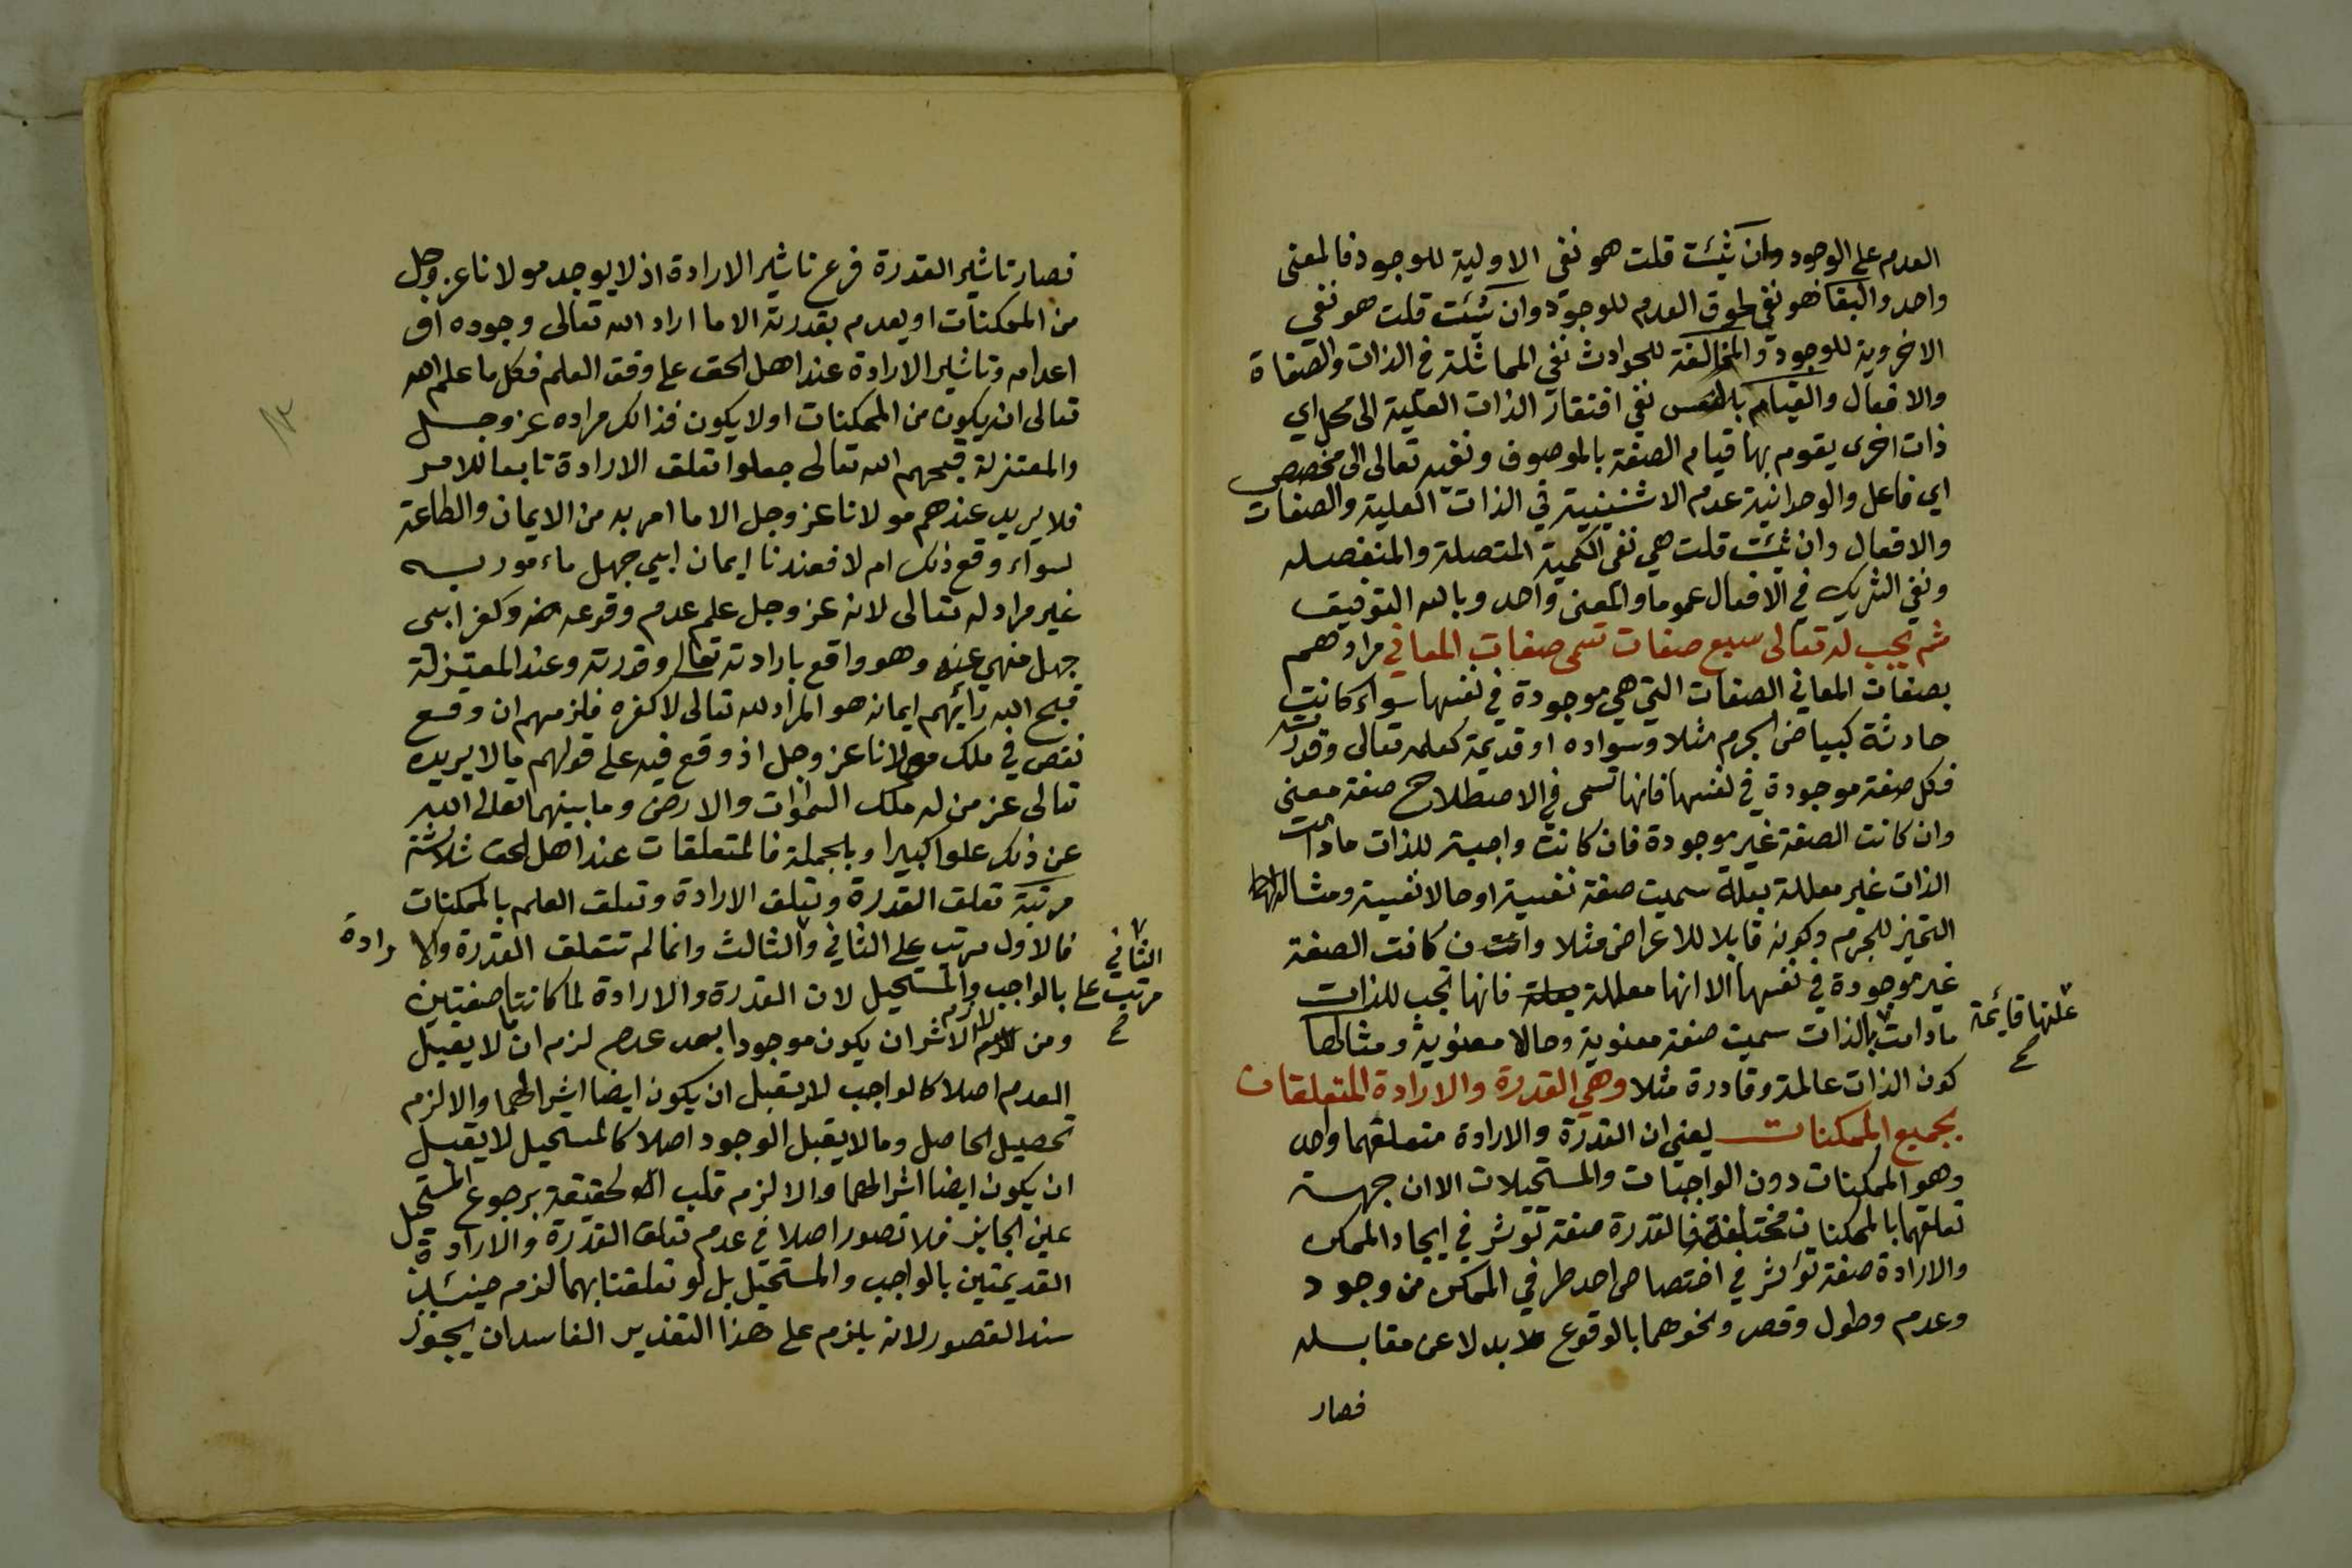 العدم على الوجود وان شئت قلت هو نفي الاولية للوجود فالمعنى
واحد والبقا هو نفي لحوق العدم للوجود وان شئت قلت هو نفي
الاخروية للوجود والمخالفة للحوادث نفي المماثلة في الذات والصفاة
والافعال والقيام بالنفس نفي افتقار الذات العلية الى محل اي
ذات اخرى يقوم بها قيام الصفة بالموصوف ونفيه تعالى الى مخصص
اي فاعل والوحدانية عدم الاثنينية في الذات العلية والصفات
والافعال وان شئت قلت هي نفي الكمية المتصلة والمنفصله
ونفي الشريك في الافعال عموما والمعنى واحد وبالله التوفيق
ثم يجب له تعالى سبع صفات تسمى صفات المعاني مرادهم
بصفات المعاني الصفات التي هي موجودة في نفسها سواء كانت
حادثة كبياض الجرم مثلا وسواده او قديمة كعلمه تعالى وقدرته
فكل صفة موجودة في نفسها فانها تسمى في الاصطلاح صفة معنى
وان كانت الصفة غير موجودة فان كانت واجبة للذات مادامت
الذات غير معللة بعلة سميت صفة نفسية او حالا نفسية ومثالها
التحيز للجرم وكونه قابلا للاعراض مثلا وان كانت الصفة
غير موجودة في نفسها الا انها معللة بعلة فانها تجب للذات
مادامت بالذات سميت صفة معنوية وحالا معنوية ومثالها
علتها قايمة
صح
كون الذات عالمة وقادرة مثلا وهي القدرة والارادة المتعلقات
بجميع الممكنات يعني ان القدرة والارادة متعلقهما واحد
وهو الممكنات دون الواجبات والمستحيلات الا ان جهة
تعلقهما بالممكنات مختلفة فالقدرة صفة تؤثر في ايجاد الممكن
والارادة صفة تؤثر في اختصاص احد طرفي الممكن من وجود
وعدم وطول وقصر ونحوهما بالوقوع بدلا عن مقابله
فصار
فصار تاثير القدرة فرع تاثير الارادة اذ لا يوجد مولانا عز وجل
من الممكنات او يعدم بقدرته الا ما اراد الله تعالى وجوده او
اعدامه وتاثير الارادة عند اهل الحق على وفق العلم فكل ما علم الله
تعالى انه يكون من الممكنات او لا يكون فذالك مراده عز وجل
والمعتزلة قبحهم الله تعالى جعلوا تعلق الارادة تابعا للامر
فلا يريد عندهم مولانا عز وجل الا ما امر به من الايمان والطاعة
سواء وقع ذلك ام لا فعندنا ايمان ابي جهل ماءمور به
غير مراد له تعالى لانه عز وجل علم عدم وقوعه منه وكفر ابي
جهل منهي عنه وهو واقع بارادته تعالى وقدرته وعند المعتزلة
قبح الله رائهم ايمانه هو المراد لله تعالى لا كفره فلزمهم ان وقع
نقص في ملك مولانا عز وجل اذ وقع فيه على قولهم ما لا يريده
تعالى عز من له ملك السموات والارض وما بينهما تعالى الله
عن ذلك علوا كبيرا وبلجملة فالمتعلقات عند اهل الحق ثلاثة
مرتبة تعلق القدرة وتعلق الارادة وتعلق العلم بالممكنات
فالاول مرتب على الثاني والثالث وانما لم تتعلق القدرة والارادة
الثاني
مرتب على
صح
بالواجب والمستحيل لان القدرة والارادة لما كانتا صفتين
ومن لازم الاثر ان يكون موجودا بعد عدم لزم ان ما لا يقبل
العدم اصلا كالواجب لا يقبل ان يكون ايضا اثرا لهما والا لزم
تحصيل الحاصل وما لا يقبل الوجود اصلا كالمستحيل لا يقبل
ان يكون ايضا اثرا لهما والا لزم قلب الحقيقة برجوع المستحيل
عين الجايز فلا تصور اصلا في عدم تعلق القدرة والارادة
القديمتين بالواجب والمستحيل بل لو تعلقتا بهما لزم حينئذ
سند القصور لانه يلزم على هذا التقدير الفاسد ان يجوز